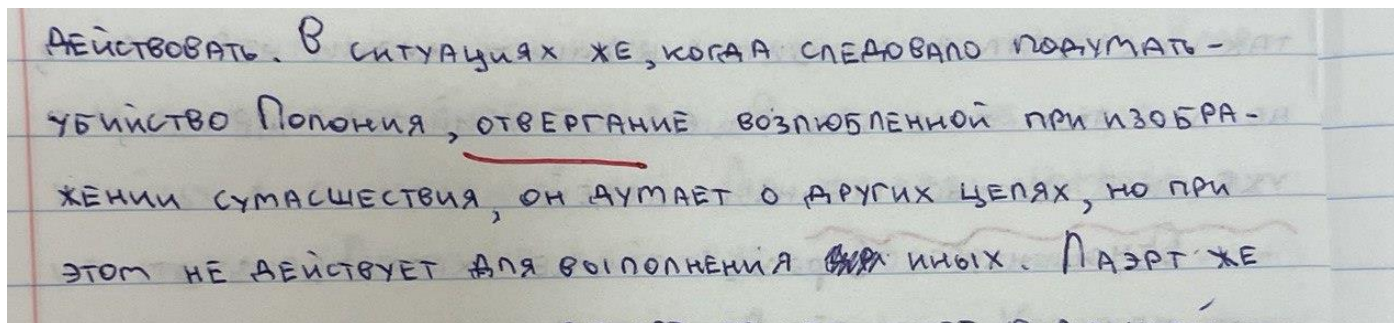 действовать. В ситуациях же, когда следовало подумать -
убийство Полония, отвергание возлюбленной при изобра-
жении сумасшествия, он думает о других целях, но при
этом не действует для выполнения иных. Лаэрт же